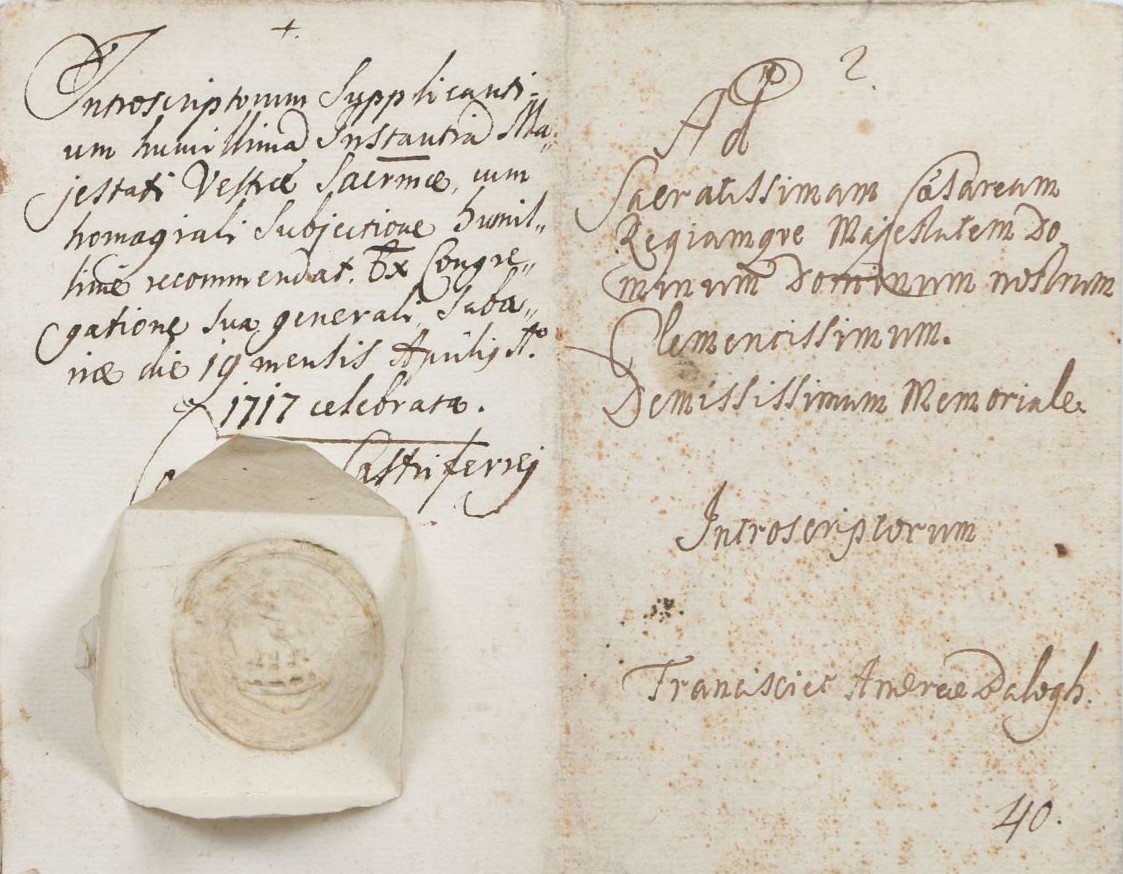 +.
Introscriptorum Supplicanti-
um humillimã Instantiã Ma„
jestati Vestræ Sacrmæ, cum
homagiali Subjectione humil„
lime recommendat. Ex Congre„
gatione sua generali Saba„
riæ die 19 mensis Aprilis Aº.
1717 celebrata.
Castriferrej
2
Ad
Sacratissimam Cæsaream
Regiamqve Majestatem Do
minum Dominum nostrum
Clementissimum.
Demississimum Memoriale.
Introscriptorum
Francisci et Andreæ Balogh.
40.